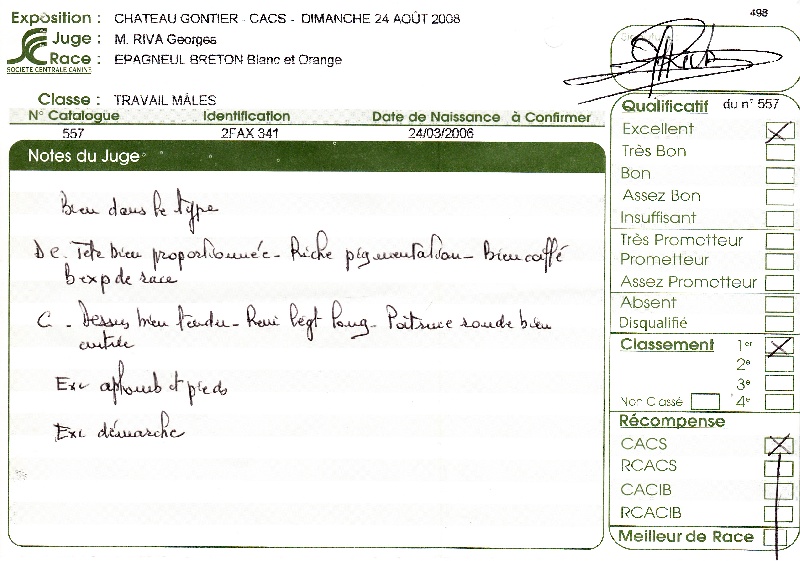 Exposition : CHATEAU GONTIER - CACS - DIMANCHE 24 AOÛT 2008
498
Juge : M. RIVA Georges
Race : EPAGNEUL BRETON Blanc et Orange
SOCIETE CENTRALE CANINE
Classe : TRAVAIL MÂLES
N° Catalogue Identification Date de Naissance à Confirmer
557 2FAX 341 24/03/2006
Notes du Juge
Bien dans le type
De. Tete bien proportionnée - Riche pigmentation - Bien coiffé
B exp de race
C. Dessus bien tendu - Rein légt long - Poitrine ronde bien
Exc aplomb et pieds
Exc démarche
Qualificatif du n° 557
Excellent
Très Bon
Bon
Assez Bon
Insuffisant
Très Promotteur
Prometteur
Assez Promotteur
Absent
Disqualifié
Classement 1er
2e
3e
Non Classé 4e
Récompense
CACS
RCACS
CACIB
RCACIB
Meilleur de Race